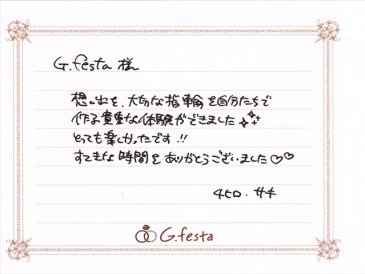 G.festa 様
想い出を、大切な指輪を自分たちで
作る貴重な体験ができました
とっても楽しかったです!!
すてきな時間をありがとうございました♡♡
チヒロ・サキ
G.festa